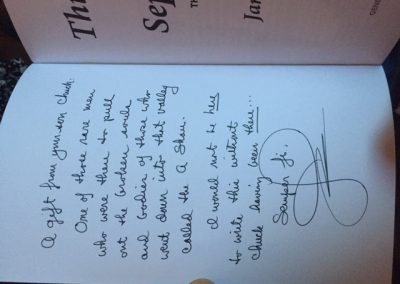 A gift from your son Chuck:
One of those rare men
who were there to pull
out the broken souls
and bodies of those who
went down into that valley
called the A Shau.
I would not be here
to write this without
Chuck having been there...
Semper fi,
Thr
Sep
TH
Jar
GENE